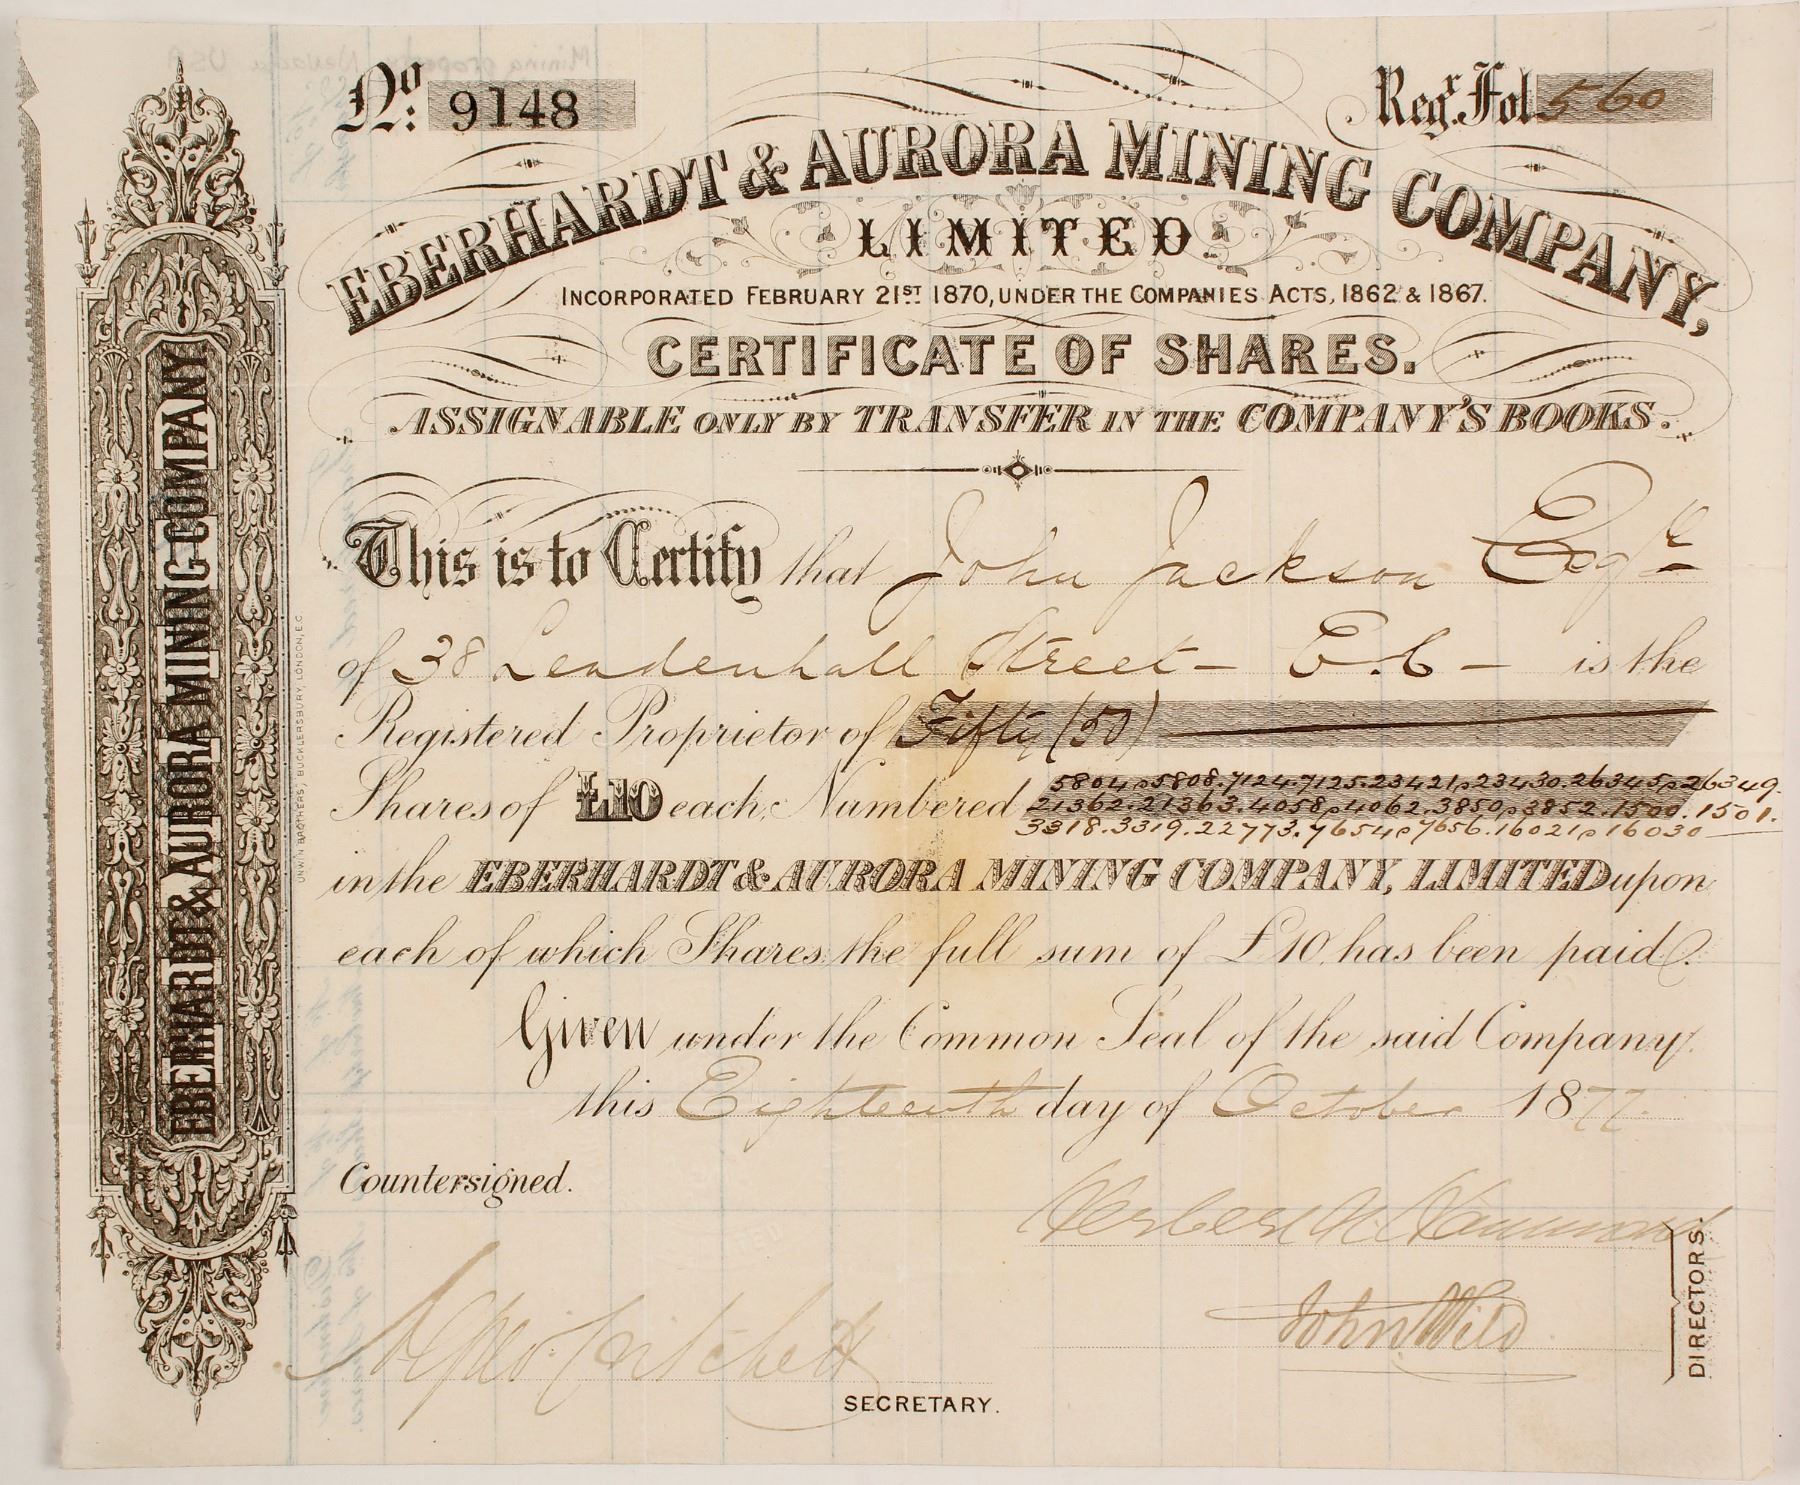 Nº: 9148
Regr. Fol 560
EBERHARDT & AURORA MINING COMPANY,
LIMITED.
INCORPORATED FEBRUARY 21ST 1870, UNDER THE COMPANIES ACTS, 1862 & 1867.
CERTIFICATE OF SHARES.
ASSIGNABLE ONLY BY TRANSFER IN THE COMPANY'S BOOKS.
This is to Certify that John Jackson Esqre
of 38 Leadenhall Street – E.C – is the
Registered Proprietor of Fifty (50)
Shares of £10 each, Numbered 5804 p 5808. 7124. 7125. 23421 p 23430. 26345 p 26349.
21362. 21363. 4058 p 4062. 3850 p 3852. 1500. 1501.
3318. 3319. 22773. 7654 p 7656. 16021 p 16030
in the EBERHARDT & AURORA MINING COMPANY, LIMITED upon
each of which Shares the full sum of £10 has been paid.
Given under the Common Seal of the said Company,
this Eighteenth day of October 1877.
Countersigned.
John Wild
DIRECTORS.
SECRETARY.
EBERHARDT & AURORA MINING COMPANY
UNWIN BROTHERS, BUCKLERSBURY, LONDON, E.C.